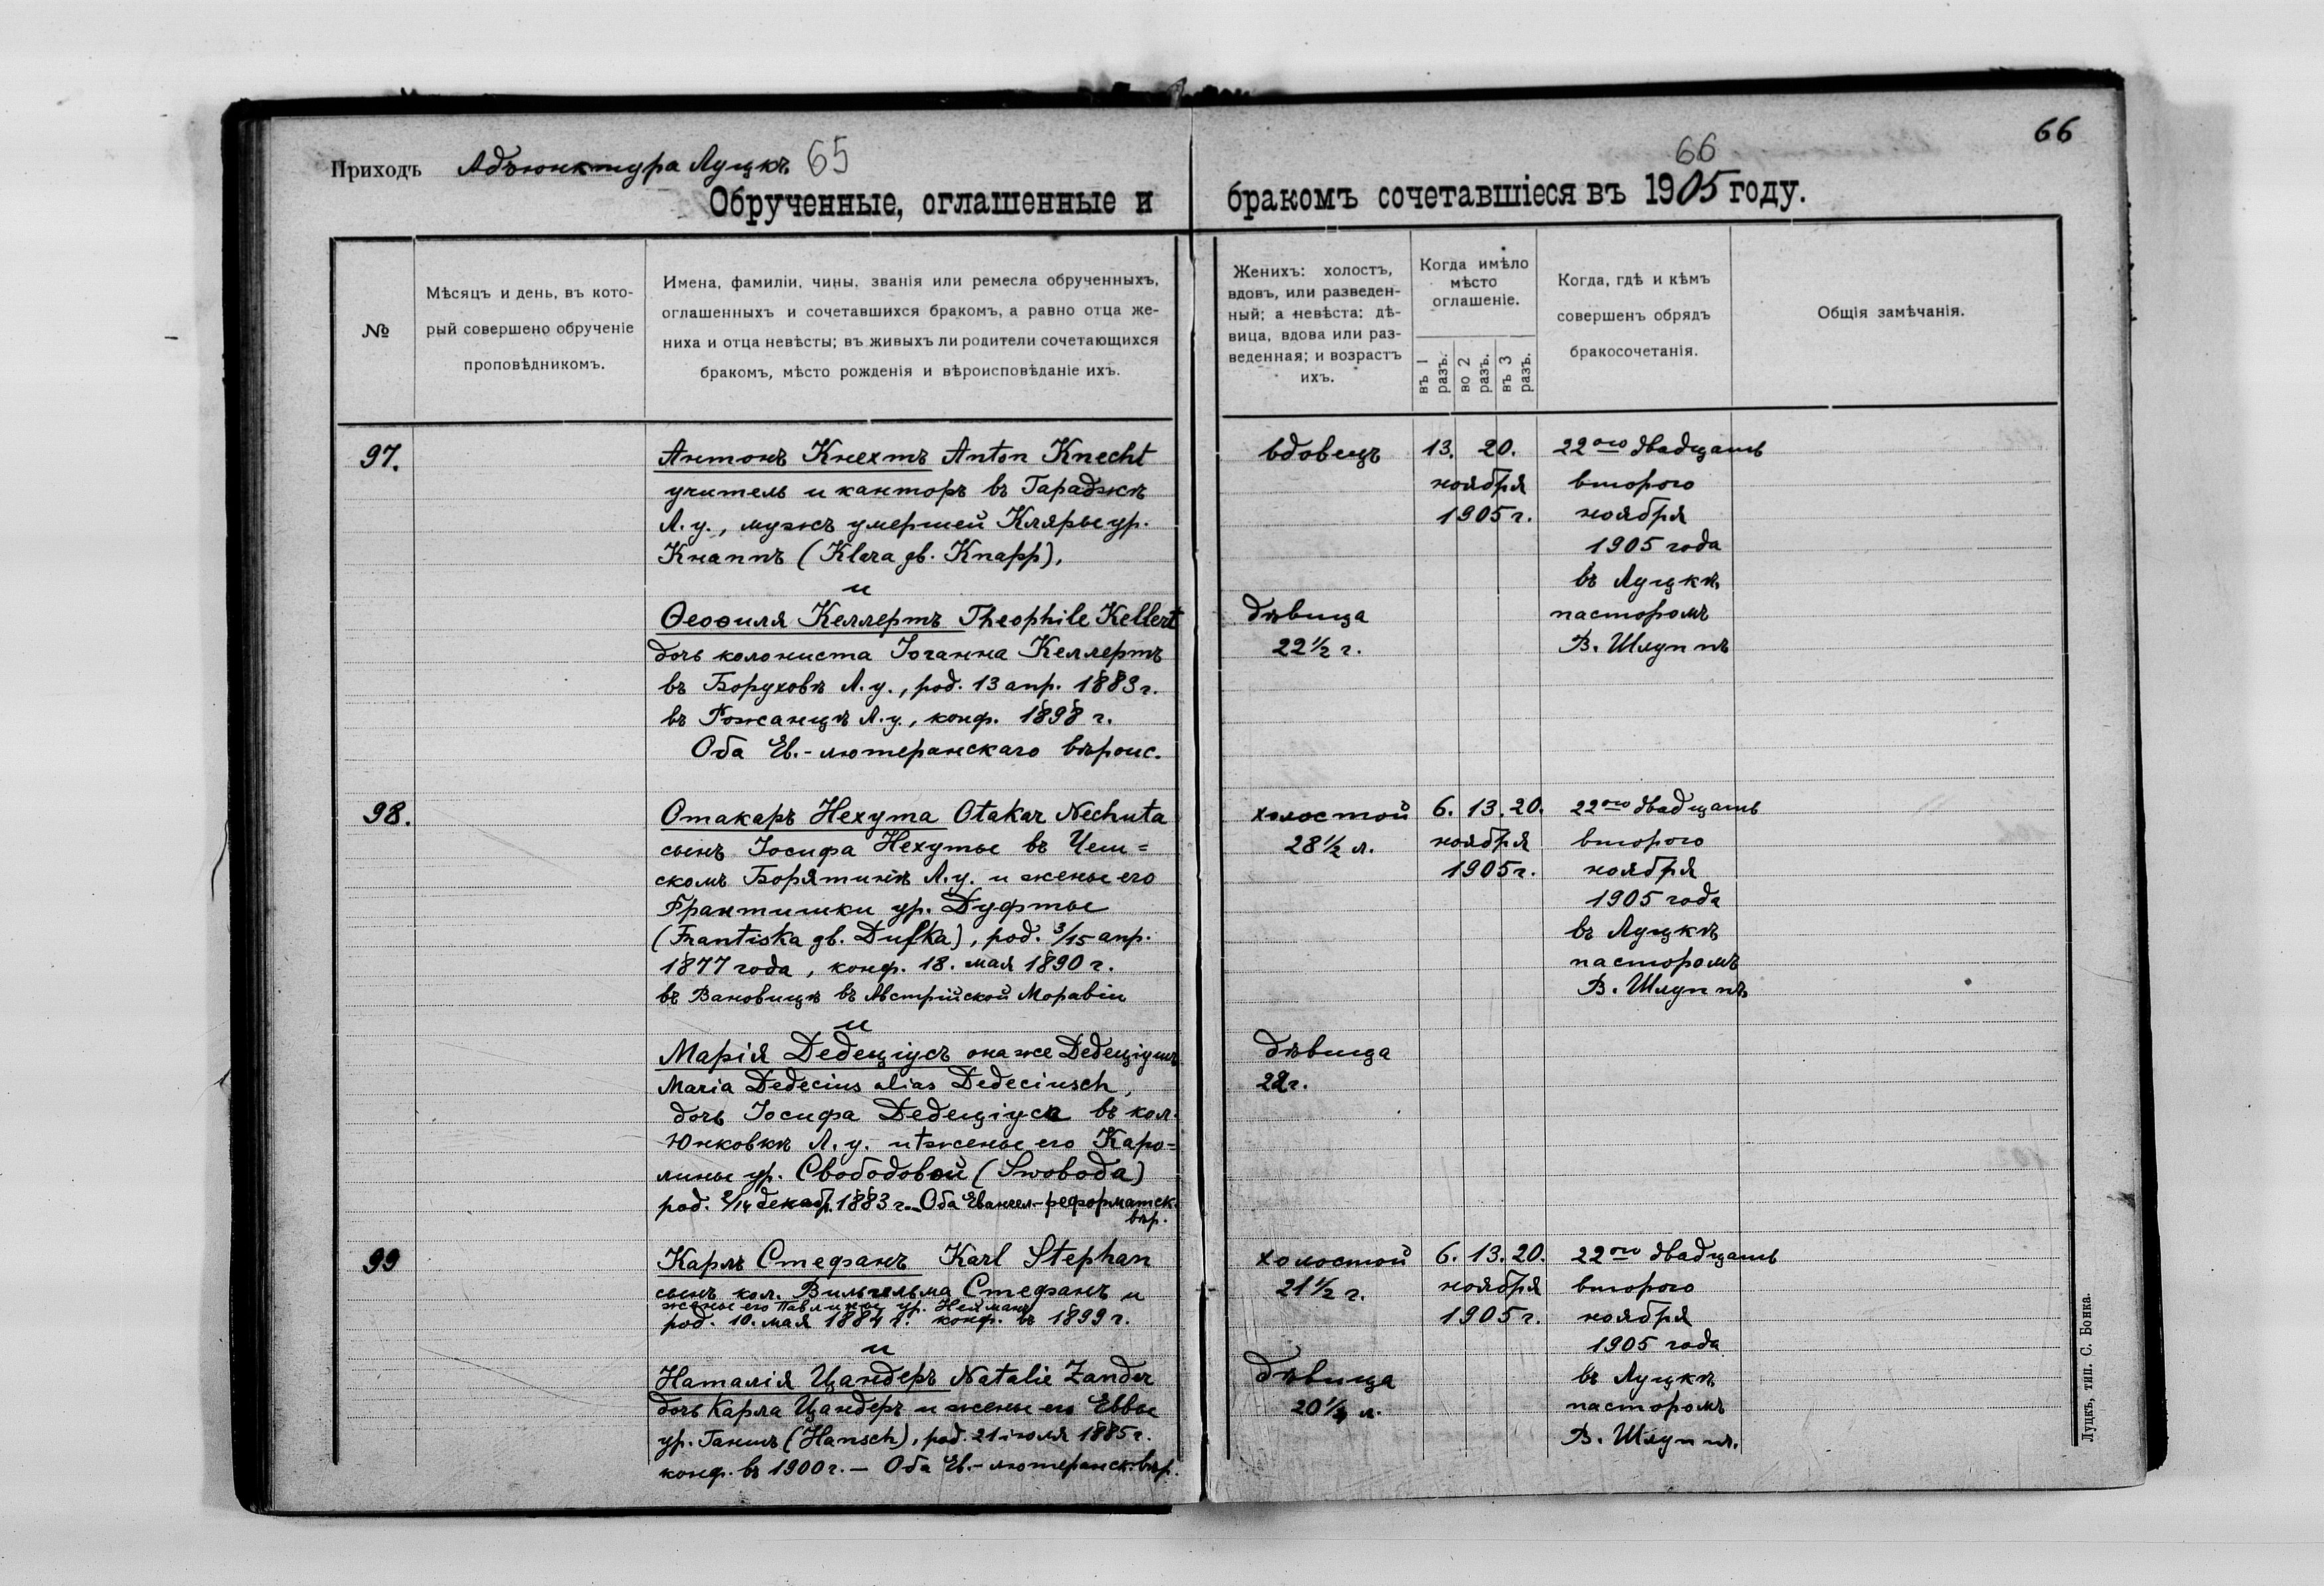 Приходъ Адъюнктура Луцкъ. 65
66
66
Обрученные, оглашенные и бракомъ сочетавшіеся въ 1905 году.
№
Мѣсяцъ и день, въ кото-
рый совершено обрученіе
проповѣдникомъ.
Имена, фамиліи, чины, званія или ремесла обрученныхъ,
оглашенныхъ и сочетавшихся бракомъ, а равно отца же-
ниха и отца невѣсты; въ живыхъ ли родители сочетающихся
бракомъ, мѣсто рожденія и вѣроисповѣданіе ихъ.
Женихъ: холостъ,
вдовъ, или разведен-
ный; а невѣста: дѣ-
вица, вдова или раз-
веденная; и возрастъ
ихъ.
Когда имѣло
мѣсто
оглашеніе.
въ 1
разъ.
во 2
разъ.
въ 3
разъ.
Когда, гдѣ и кѣмъ
совершенъ обрядъ
бракосочетанія.
Общія замѣчанія.
97.
Антонъ Кнехтъ Anton Knecht
учитель и канторъ въ Гараджѣ
Л. у., мужъ умершей Клары ур.
Кнаппъ (Klara gb. Knapp),
и
Ѳеофиля Келлертъ Theophile Kellert
дочь колониста Іоганна Келлертъ
въ Боруховѣ Л. у., род. 13 апр. 1883 г.
въ Рожанцѣ Л. у., конф. 1898 г.
Оба Ев.-лютеранскаго вѣроис.
вдовецъ
дѣвица
22 1/2 г.
13. 20.
ноября
1905 г.
22ого двадцать
второго
ноября
1905 года
въ Луцкѣ
пасторомъ
В. Шлуппъ
98.
Отакаръ Нехута Otakar Nechuta
сынъ Іосифа Нехуты въ Чеш=
скомъ Борятинѣ Л. у. и жены его
Франтишки ур. Дуфты
(Frantiska gb. Dufka), род. 3/15 апр.
1877 года, конф. 18. мая 1890 г.
въ Вановицѣ въ Австрійской Моравіи
и
Марія Дедеціусъ она же Дедеціушъ
Maria Dedecius alias Dedeciusch,
дочь Іосифа Дедеціуса въ кол.
Юнковкѣ Л. у. и жены его Каро=
лины ур. Свободовой (Swoboda)
род. 2/14 декаб. 1883 г. Оба Евангел.-реформатск.
вѣр.
холостой
28 1/2 л.
дѣвица
22 г.
6. 13. 20.
ноября
1905 г.
22ого двадцать
второго
ноября
1905 года
въ Луцкѣ
пасторомъ
В. Шлуппъ
99
Карлъ Стефанъ Karl Stephan
сынъ кол. Вильгельма Стефанъ и
жены его Павлины ур. Нейманъ
род. 10. мая 1884 г. конф. въ 1899 г.
и
Наталія Цандеръ Natalie Zander
дочь Карла Цандеръ и жены его Еввы
ур. Ганшъ (Hansch), род. 21 іюля 1885 г.
конф. въ 1900 г. — Оба Ев.-лютеранск. вѣр.
холостой
21 1/2 г.
дѣвица
20 1/4 л.
6. 13. 20.
ноября
1905 г.
22ого двадцать
второго
ноября
1905 года
въ Луцкѣ
пасторомъ
В. Шлуппъ.
Луцкъ, тип. С. Бонка.